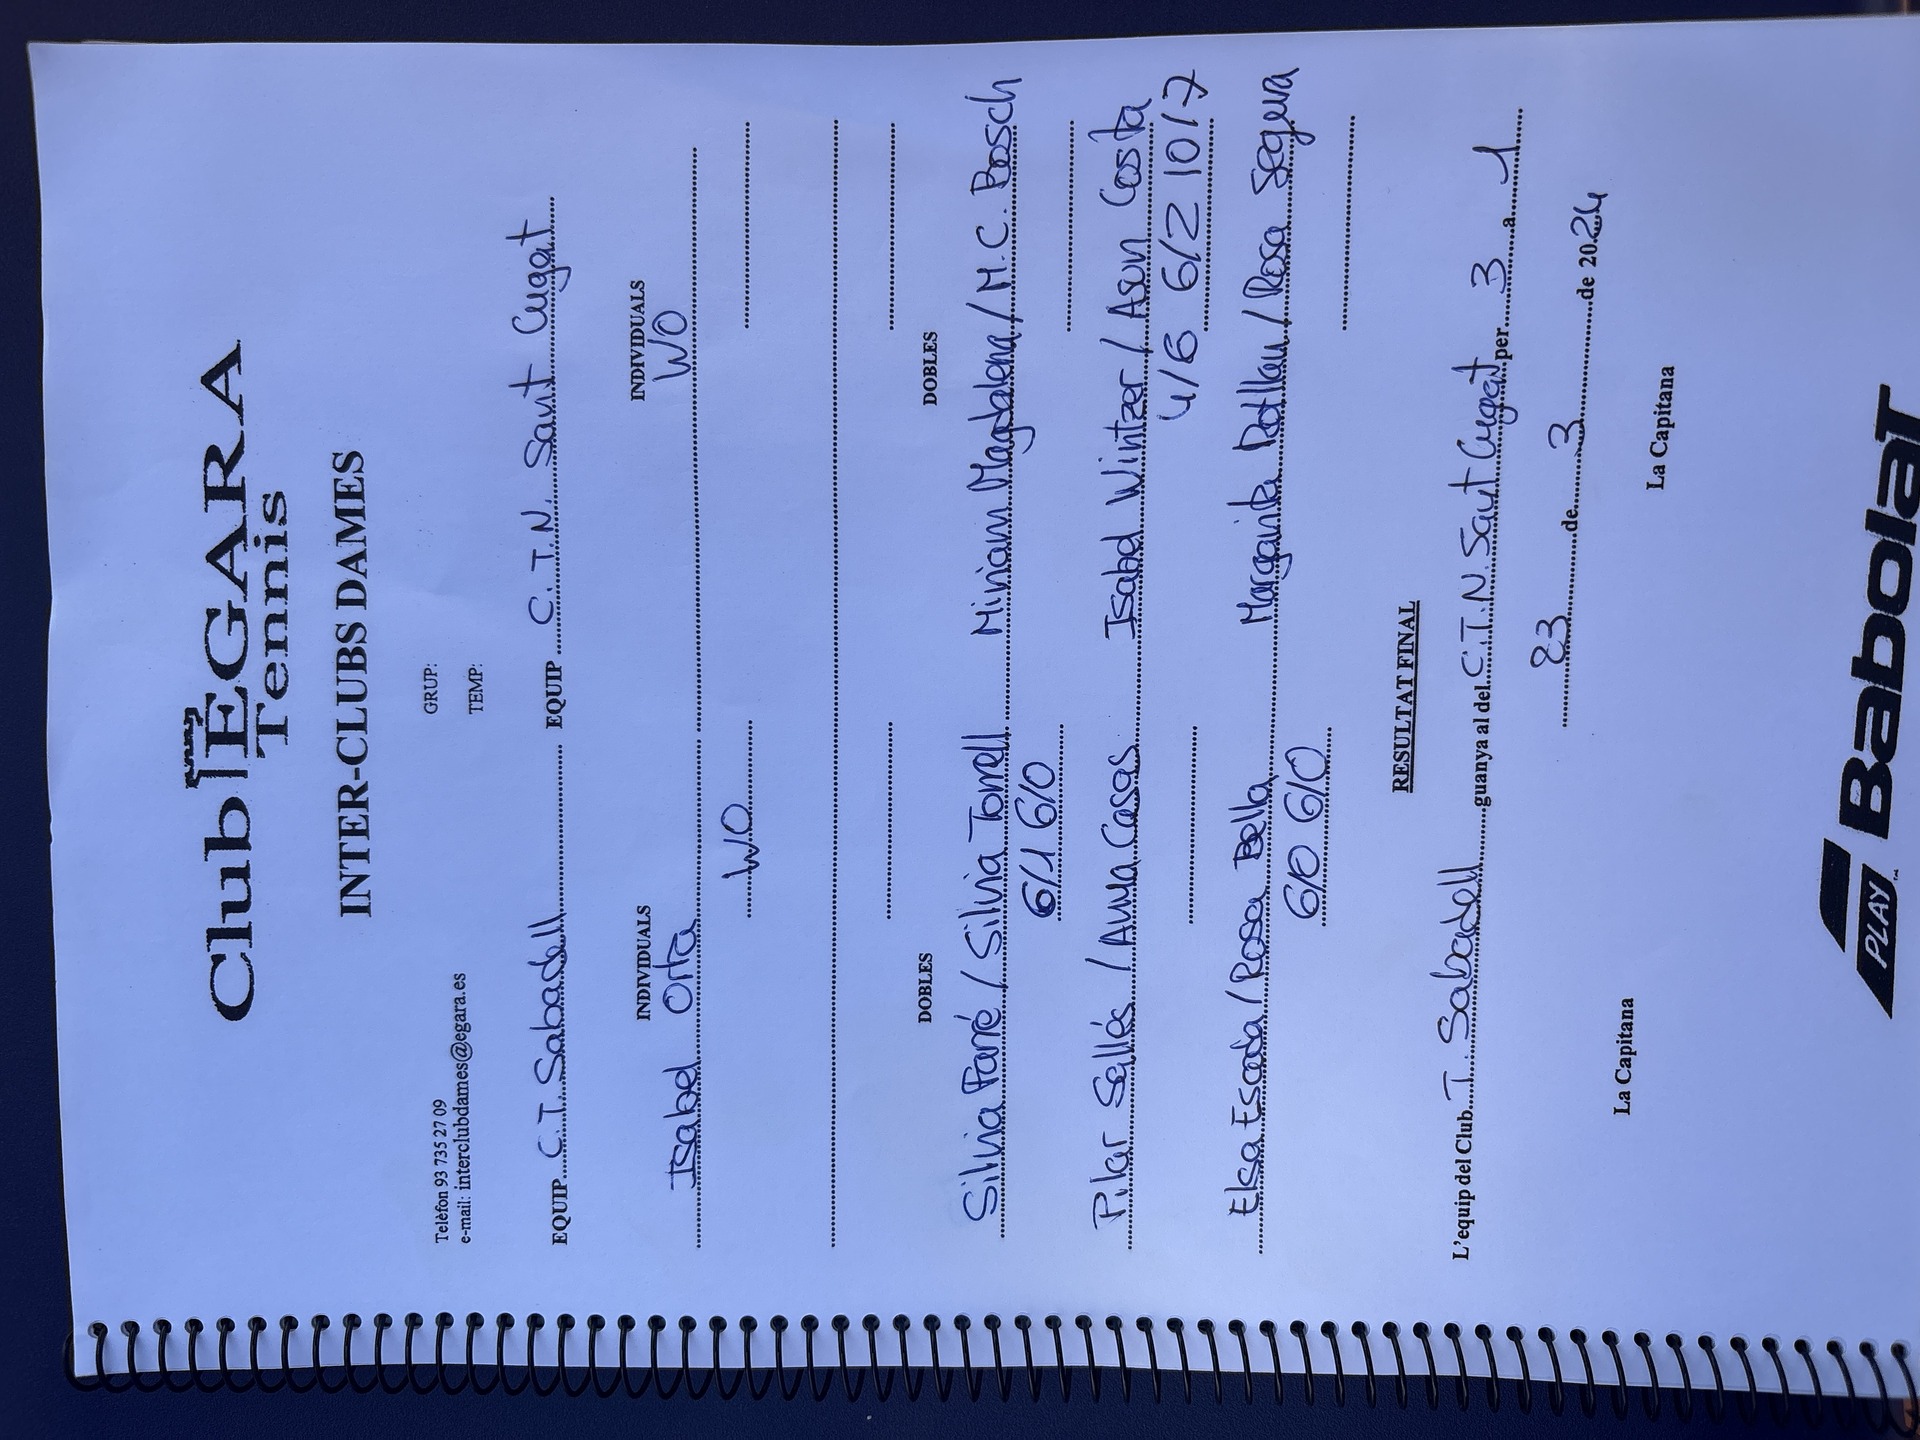 Club EGARA
Tennis
INTER-CLUBS DAMES
Telèfon 93 735 27 09 GRUP:
e-mail: interclubdames@egara.es TEMP:
EQUIP C.T. Sabadell EQUIP C.T.N. Sant Cugat
INDIVIDUALS INDIVIDUALS
Isabel Orta WO
W.O
DOBLES DOBLES
Silvia Farré / Silvia Torrell Miriam Magdalena / M.C. Bosch
6/1 6/0
Pilar Sellés / Anna Casas Isabel Wintzer / Asun Costa
4/6 6/2 10/7
Elsa Escoda / Rosa Bella Margarita Rotllan / Rosa Segura
6/0 6/0
RESULTAT FINAL
L'equip del Club T. Sabadell guanya al del C.T.N. Sant Cugat per 3 a 1
23 de 3 de 2024
La Capitana La Capitana
PLAY Babolat